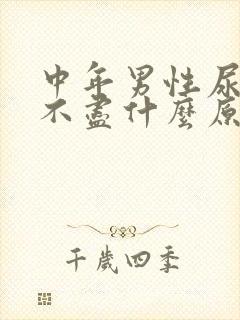 中年男性尿
不盡什麼原
千歲四季